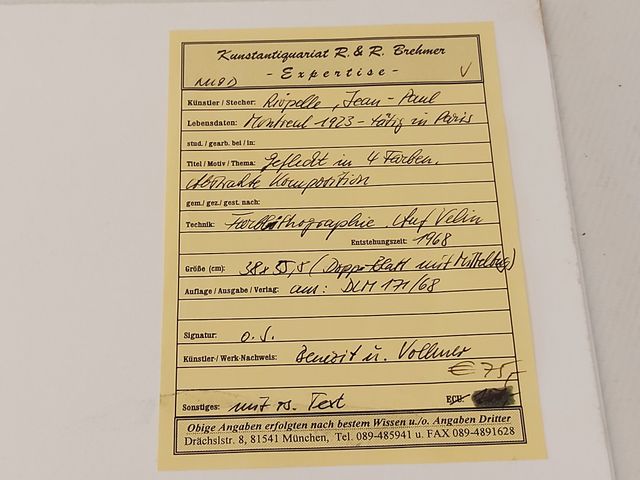 Kunstantiquariat R. & R. Brehmer
- Expertise -
Künstler / Stecher: Riopelle, Jean-Paul
Lebensdaten: Montreal 1923 - tätig in Paris
stud. / gearb. bei / in:
Titel / Motiv / Thema: Geflecht in 4 Farben.
Abstrakte Komposition
gem./ gez./ gest. nach:
Technik: Farblithographie. Auf Velin
Entstehungszeit: 1968
Größe (cm): 38 x 55,5 (Doppelblatt mit Mittelbug)
Auflage / Ausgabe / Verlag: aus: DLM 171/68
Signatur: o. S.
Künstler / Werk-Nachweis: Benezit u. Vollmer
€ 75,-
Sonstiges: mit rs. Text ECU:
Obige Angaben erfolgten nach bestem Wissen u./o. Angaben Dritter
Drächslstr. 8, 81541 München, Tel. 089-485941 u. FAX 089-4891628